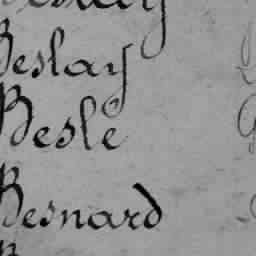 Beslay
Beslé
Besnard